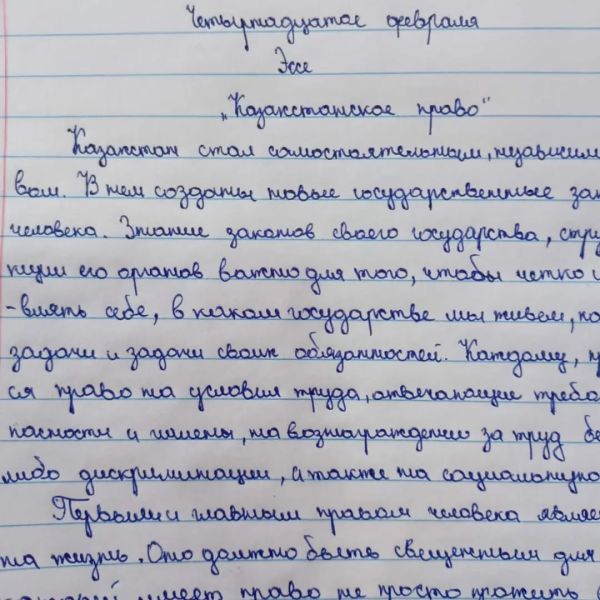 Четырнадцатое февраля
Эссе
„Казахстанское право“
Казахстан стал самостоятельным, независим
вом. В нем созданы новые государственные зак
человека. Знание законов своего государства, стру
кции его органов важно для того, чтобы четко и
-влять себе, в каком государстве мы живем, ка
задачи и задачи своих обязанностей. Каждому, г
ся право на условия труда, отвечающие требо
пасности и гигиены, на вознаграждению за труд бе
либо дискриминации, а также на социальную
Первыми главным правам человека являе
на жизнь. Оно должно быть священным для
имеет право не просто прожить